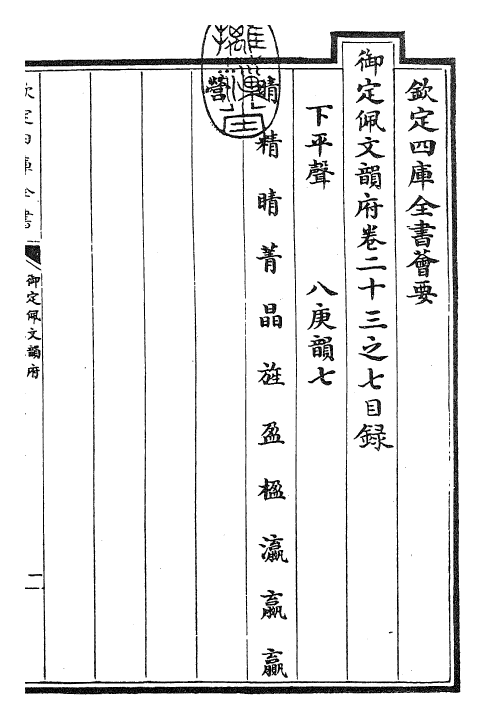 欽定四庫全書薈要
御定佩文韻府卷二十三之七目録
下平聲　八庚韻七
晴 精 睛 菁 晶 旌 盈 楹 瀛 嬴 贏
營
欽定四庫全書
御定佩文韻府